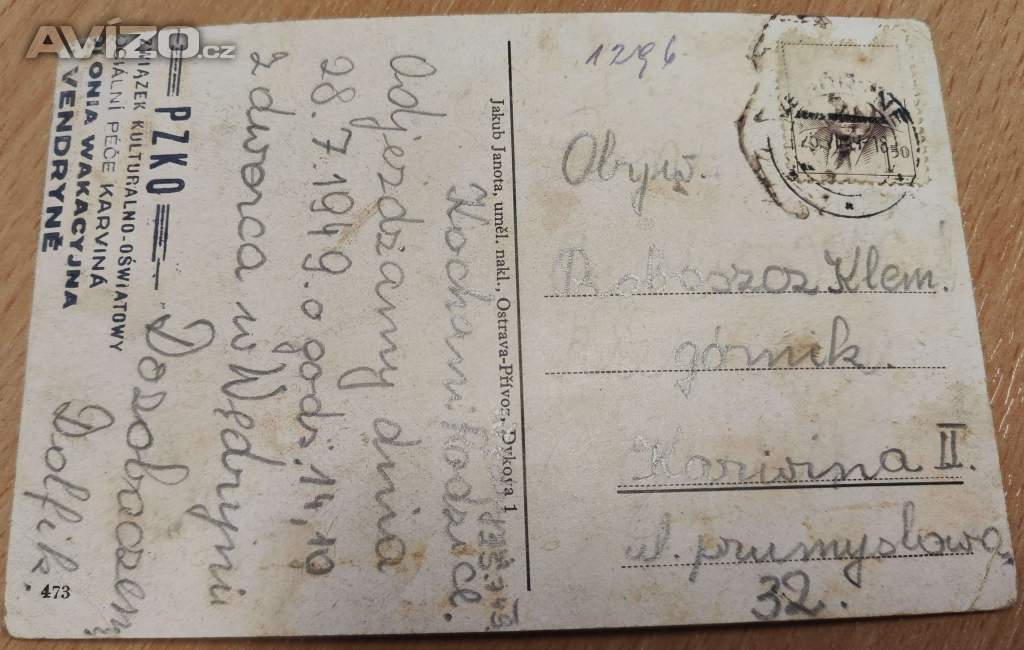 Avízo.cz
PZKO
ZWIĄZEK KULTURALNO-OŚWIATOWY
SOCIÁLNÍ PÉČE KARVINÁ
KOLONIA WAKACYJNA
VENDRYNĚ
Kochani Rodzice.
Odjeżdżamy dnia
28.7.1949. o godz. 14,19
z dworca w Wędryni
Dozobaczeny
Dolfik.
473
Jakub Janota, uměl. nakl., Ostrava-Přívoz, Dykova 1
1296
Klem.
górnik.
Karvina II.
ul. prumyslowa
32.